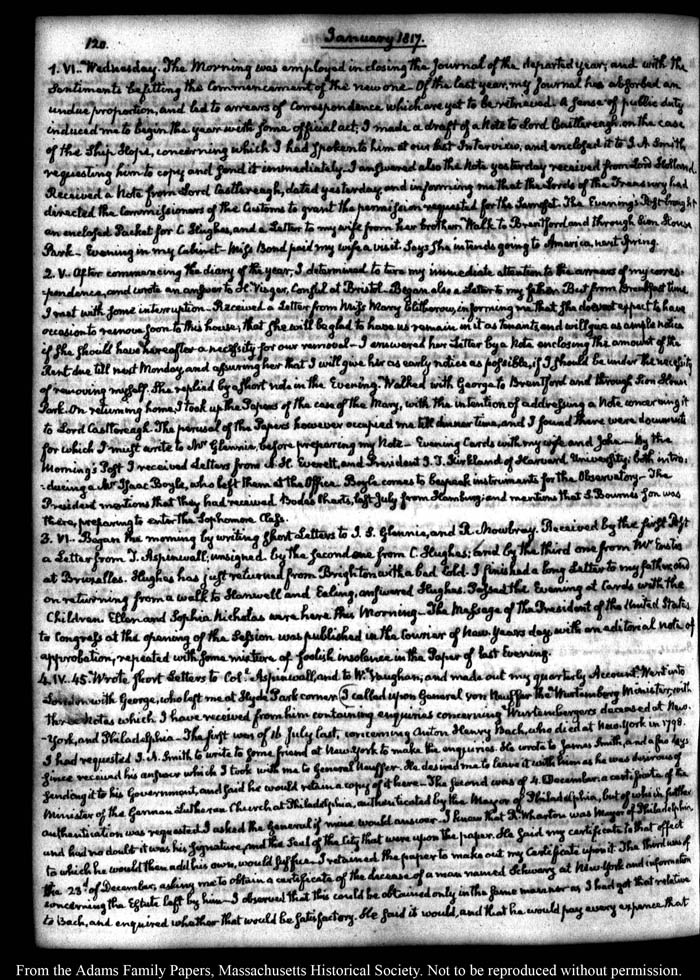 120.
January 1817.
1. VI. Wednesday. The Morning was employed in closing the Journal of the departed year, and with the
Sentiments befitting the Commencement of the new one. Of the last year, my Journal has absorbed an
undue proportion, and led to arrears of Correspondence which are yet to be retrieved. A sense of public duty
induced me to begin the year with some official act; I made a draft of a Note to Lord Castlereagh on the case
of the Ship Hope, concerning which I had spoken to him at our last Interview, and enclosed it to J. A. Smith
requesting him to copy and send it immediately. I answered also the Note yesterday received from Lord Holland.
Received a Note from Lord Castlereagh, dated yesterday, and informing me that the Lords of the Treasury had
directed the Commissioners of the Customs to grant the permission requested for the . The Evening's Post brought
an enclosed Packet for C. Hughes, and a Letter to my wife from her brother. Walk to Brentford and through Sion House
Park. Evening in my Cabinet. Miss Bond paid my wife a visit. Says she intends going to America next Spring.
2. V. After commencing the diary of the year, I determined to turn my immediate attention to the arrears of my corres-
-pondence, and wrote an answer to H. Vizger, Consul at Bristol. Began also a Letter to my father. But from Breakfast time
I met with some interruption. Received a Letter from Miss Mary Clitherow, informing me that She does not expect to have
occasion to remove soon to this house; that She will be glad to have us remain in it as tenants, and will give us ample notice
if She should have hereafter a necessity for our removal. I answered her Letter by a Note enclosing the amount of the
Rent due till next Monday, and assuring her that I will give her as early notice as possible, if I should be under the necessity
of removing myself. She replied by a short note in the Evening. Walked with George to Brentford and through Sion House
Park. On returning home, I took up the Papers of the case of the Mary, with the intention of addressing a Note concerning it
to Lord Castlereagh. The perusal of the Papers however occupied me till dinner time, and I found there were documents
for which I must write to Mr Glennie, before preparing my Note. Evening Cards with my wife and John. By the
Morning's Post I received Letters from A. H. Everett, and President J. T. Kirkland of Harvard University; both intro-
-ducing a Mr Isaac Boyle, who left them at the Office. Boyle comes to bespeak instruments for the Observatory. The
President mentions that they had received Bode's Charts, last July from Hamburg; and mentions that S. Bourne's Son was
there, preparing to enter the Sophomore Class.
3. VI. Began the morning by writing Short Letters to J. S. Glennie, and R. Mowbray. Received by the first Post
a Letter from T. Aspinwall; unsigned. by the second one from C. Hughes; and by the third one from Mr Eustis
at Bruxelles. Hughes has just returned from Brighton with a bad cold. I finished a long Letter to my father, and
on returning from a walk to Hanwell and Ealing, answered Hughes. Passed the Evening at Cards with the
Children. Ellen and Sophia Nicholas were here this Morning. The Message of the President of the United States
to Congress at the opening of the Session was published in the Courier of New Years day, with an editorial note of
approbation, repeated with some mixture of foolish insolence in the Paper of last Evening.
4. IV. 45. Wrote short Letters to Col. Aspinwall, and to W. Vaughan; and made out my quarterly Account. Went into
London with George, who left me at Hyde Park corner. I called upon General von Neuffer the Wurtemberg Minister, with
three Notes which I have received from him containing enquiries concerning Wurtembergers deceased at New-
-York, and Philadelphia. The first was of 16 July last, concerning Anton Henry Bach, who died at New-York in 1798.
I had requested J. A. Smith to write to some friend at New York to make the enquiries. He wrote to James Smith, and a few days
since received his answer which I took with me to General Neuffer. He desired me to leave it with him as he was desirous of
sending it to his Government, and said he would retain a copy of it here. The second was of 4. December. a certificate of the
Minister of the German Lutheran Church at Philadelphia, authenticated by the Mayor of Philadelphia, but of which further
authentication was requested. I asked the General if mine would answer. I knew that R. Wharton was Mayor of Philadelphia,
and had no doubt it was his signature, and the Seal of the City that were upon the paper. He said my certificate to that effect
to which he would then add his own, would suffice. I retained the paper to make out my Certificate upon it. The third was of
the 23d. of December, asking me to obtain a certificate of the decease of a man named Schwarz at New York and information
concerning the Estate left by him. I observed that this could be obtained only in the same manner as I had got that relative
to Bach, and enquired whether that would be satisfactory. He said it would, and that he would pay every expence that
From the Adams Family Papers, Massachusetts Historical Society. Not to be reproduced without permission.